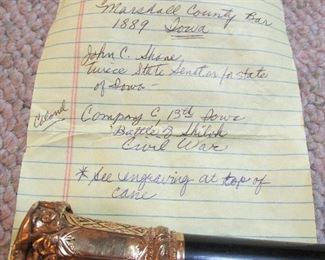 Marshall County Bar
1889 Iowa
John C. Shane
twice State Senator for state
of Iowa -
Colonel
Company G, 13th Iowa
Battle of Shiloh
Civil War
* See engraving at top of
cane